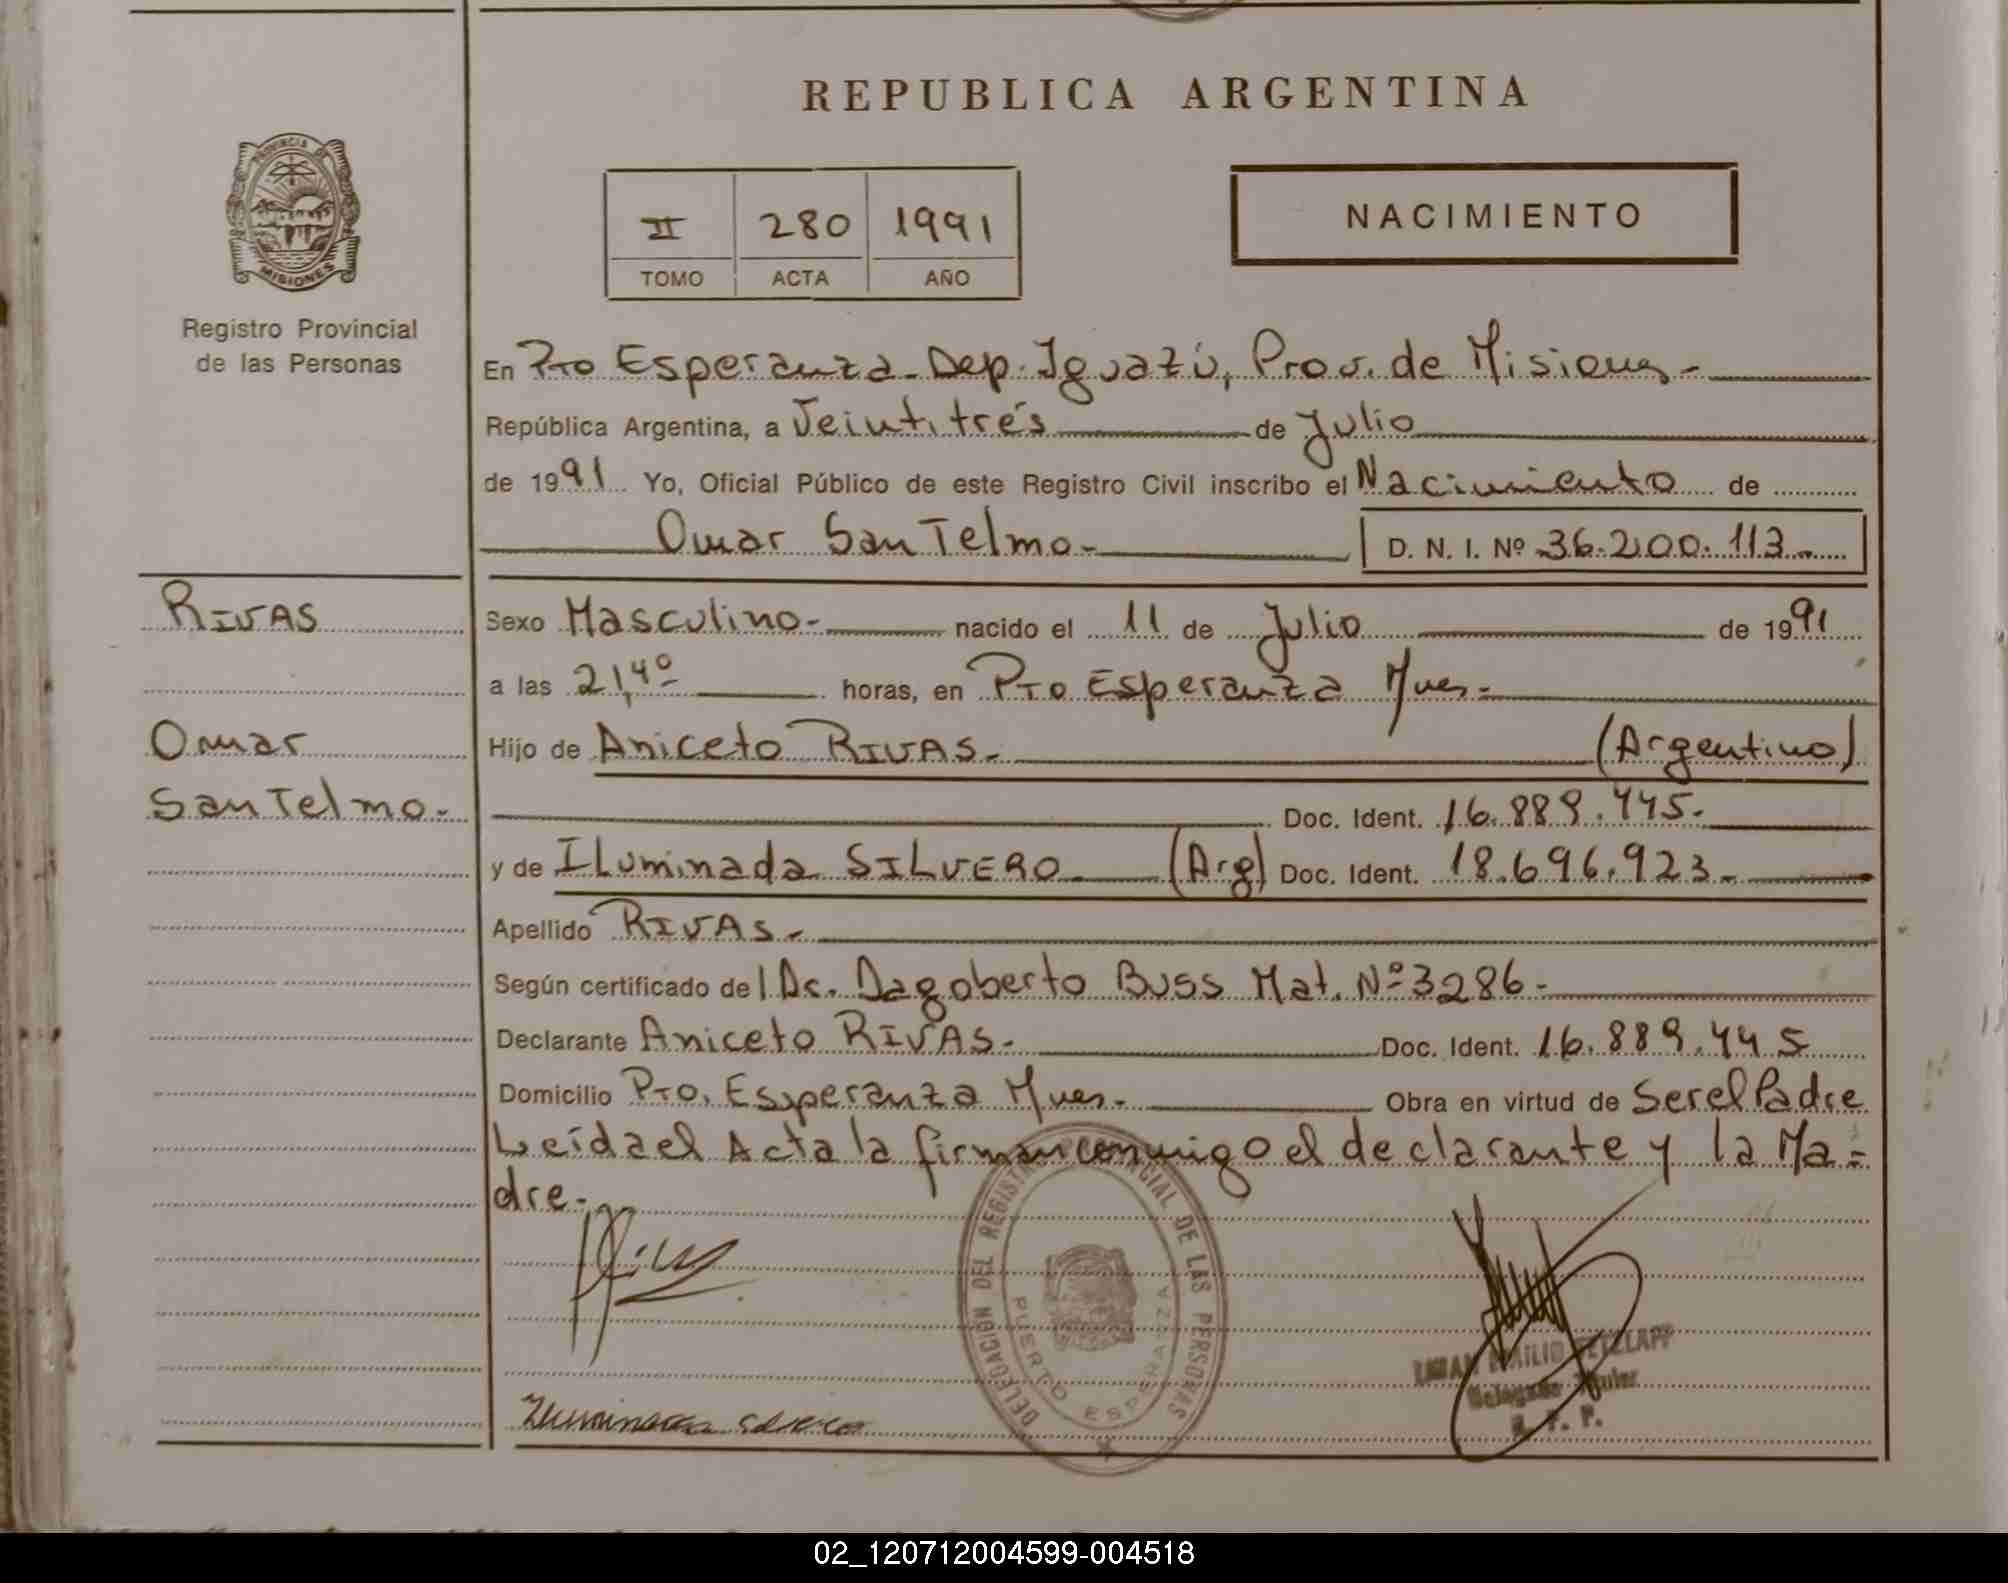 REPUBLICA ARGENTINA
PROVINCIA DE
MISIONES
Registro Provincial
de las Personas
II 280 1991
TOMO ACTA AÑO
NACIMIENTO
En Pto Esperanza - Dep. Iguazú, Prov. de Misiones -
República Argentina, a Veintitrés de Julio
de 1991 Yo, Oficial Público de este Registro Civil inscribo el Nacimiento de
Omar San Telmo - D. N. I. Nº 36.200.113 -
RIVAS
Omar
San Telmo -
Sexo Masculino - nacido el 11 de Julio de 1991
a las 21,40 horas, en Pto Esperanza Mnes -
Hijo de Aniceto RIVAS - (Argentino)
Doc. Ident. 16.889.445 -
y de ILuminada SILVERO - (Arg) Doc. Ident. 18.696.923 -
Apellido RIVAS -
Según certificado del Dr. Dagoberto Buss Mat. Nº 3286 -
Declarante Aniceto RIVAS - Doc. Ident. 16.889.445
Domicilio Pto. Esperanza Mnes - Obra en virtud de Ser el Padre
Leída el Acta la firman conmigo el declarante y la Ma=
dre -
DELEGACION DEL REGISTRO PROVINCIAL DE LAS PERSONAS
PUERTO ESPERANZA
EMILIO
Delegado Titular
R. P. P.
02_120712004599-004518